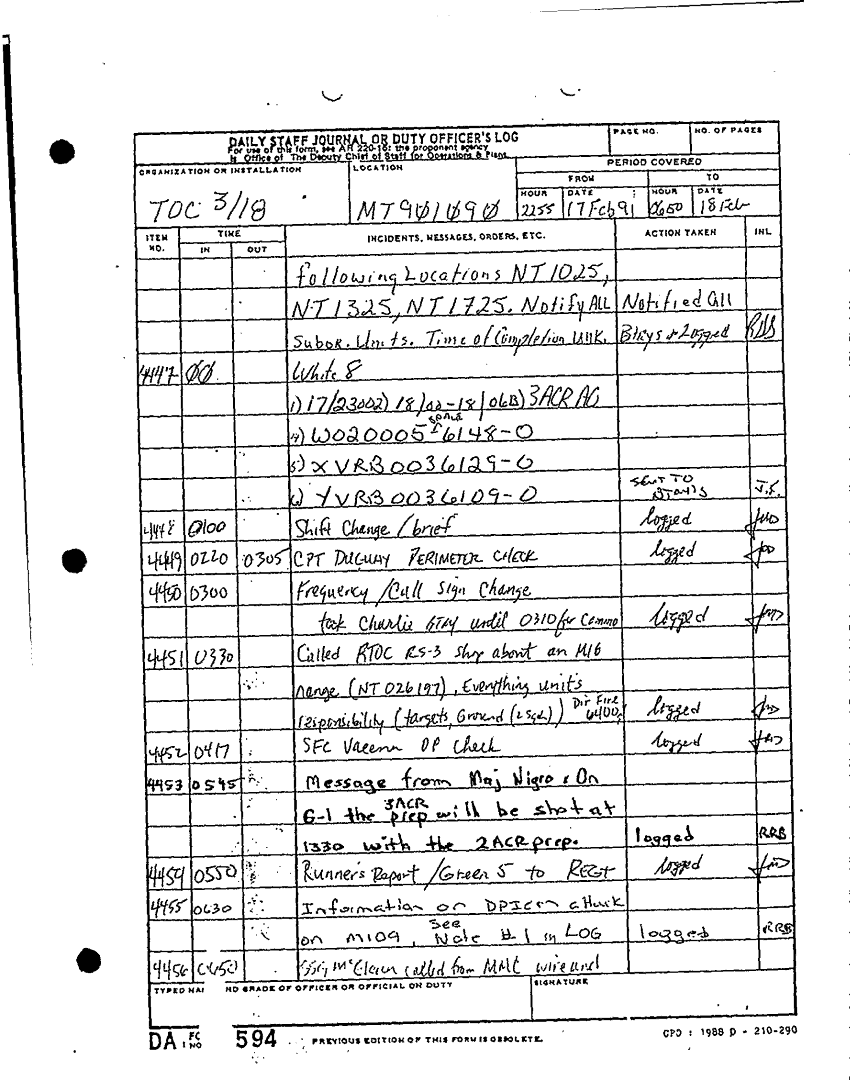 DAILY STAFF JOURNAL OR DUTY OFFICER'S LOG
For use of this form, see AR 220-15; the proponent agency
is Office of The Deputy Chief of Staff for Operations & Plans.
PAGE NO.
NO. OF PAGES
ORGANIZATION OR INSTALLATION
LOCATION
PERIOD COVERED
FROM
TO
HOUR DATE HOUR DATE
TOC 3/18 MT901090 2255 17 Feb 91 0650 18 Feb
ITEM NO. TIME IN OUT INCIDENTS, MESSAGES, ORDERS, ETC. ACTION TAKEN INL
following Locations NT1025,
NT1325, NT1725. Notify ALL Notified all
Subor. Units. Time of Completion Unk. Btrys & Logged
4447 00 White 8
1) 17/2300 2) 18/00-18/06 3) 3ACR AO
4) W020005 6148-0
5) XVRB0036129-0
6) YVRB0036109-0 SENT TO J.S.
4448 0100 Shift Change / brief logged
4449 0220 0305 CPT PERIMETER CHECK logged
4450 0300 Frequency / Call Sign Change
took Charlie until 0310 for Commo logged
4451 0330 Called RTOC RS-3 shop about an M16
range (NT 026197), Everything units
responsibility (targets, Ground ( )) Dir Fire 6400 logged
4452 0417 SFC OP Check logged
4453 0545 Message from Maj Nigro : On
G-1 the 3ACR prep will be shot at
1330 with the 2ACR prep. logged RRB
4454 0550 Runner's Report / Green 5 to REGT logged
4455 0630 Information on DPICM attack
on M109, See Note #1 in LOG logged RRB
4456 0650 called from MMC wire and
TYPED NA ND GRADE OF OFFICER OR OFFICIAL ON DUTY
SIGNATURE
DA 594
PREVIOUS EDITION OF THIS FORM IS OBSOLETE.
GPO : 1988 O - 210-290